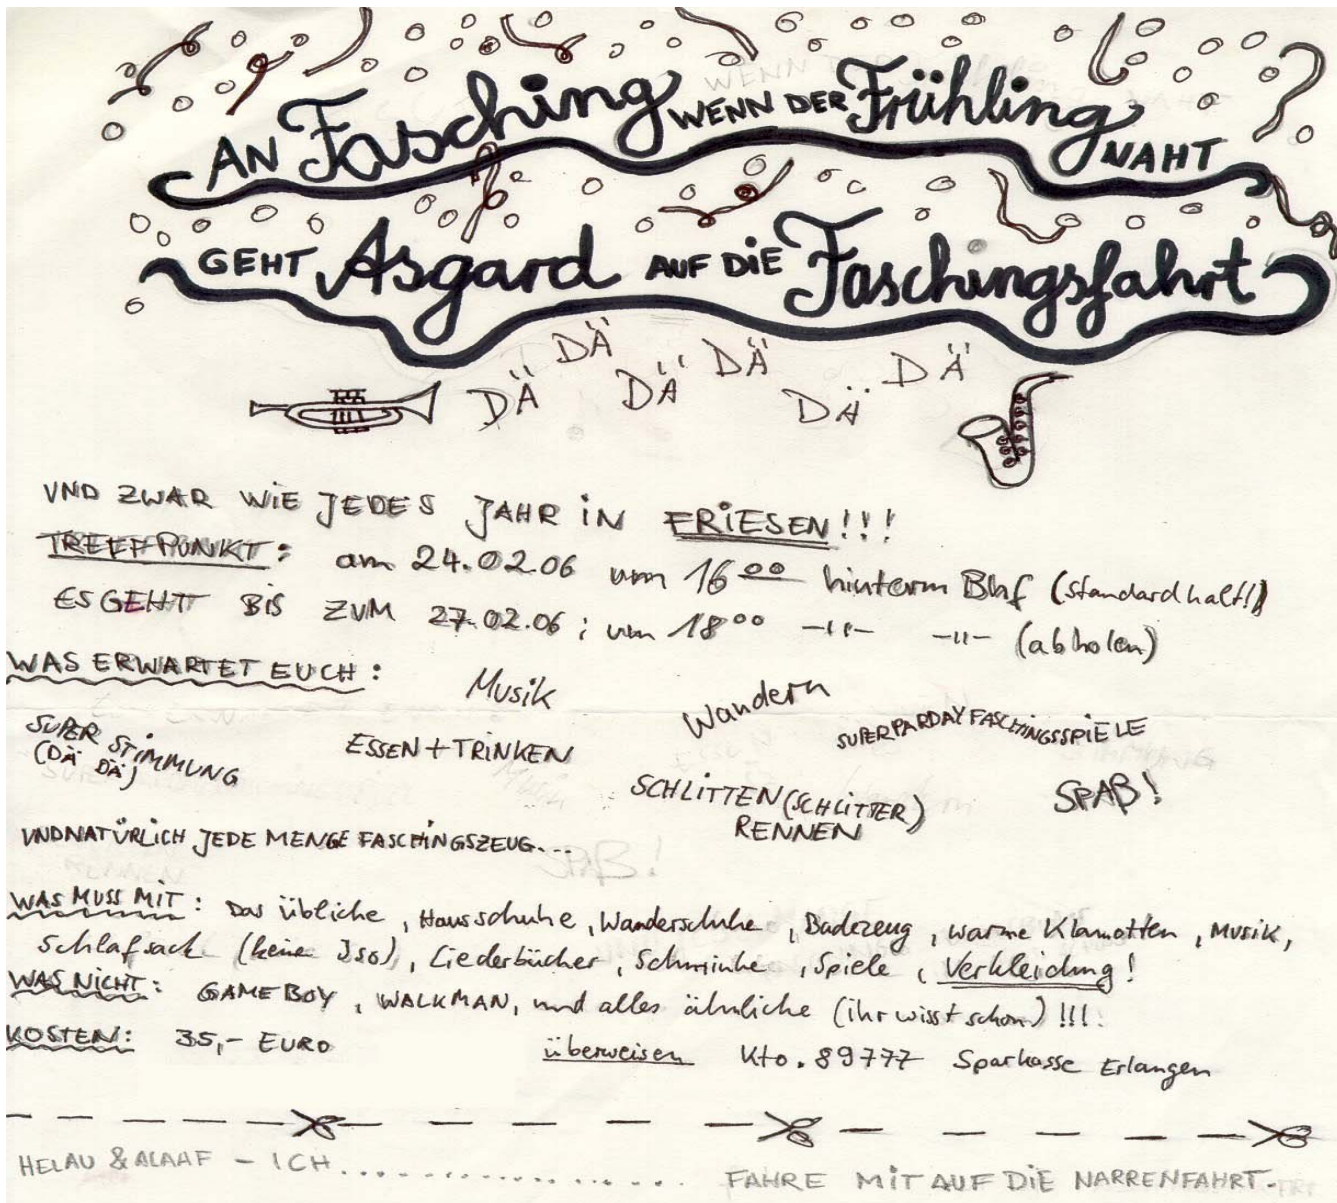 AN Fasching WENN DER Frühling NAHT
GEHT Asgard AUF DIE Faschingsfahrt
DÄ DÄ DÄ DÄ DÄ DÄ
UND ZWAR WIE JEDES JAHR IN FRIESEN!!!
TREFFPUNKT: am 24.02.06 um 16 00 hinterm Bhf (standardhalt!)
ES GEHT BIS ZUM 27.02.06; um 18 00 -"- -"- (abholen)
WAS ERWARTET EUCH:
Musik
Wandern
SUPER STIMMUNG
(DÄ DÄ)
ESSEN + TRINKEN
SUPERPARDAYFASCHINGSSPIELE
SCHLITTEN (SCHLITTER)
RENNEN
SPAß!
UND NATÜRLICH JEDE MENGE FASCHINGSZEUG...
WAS MUSS MIT: Das übliche, Hausschuhe, Wanderschuhe, Badezeug, warme Klamotten, MUSIK,
Schlafsack (keine Iso), Liederbücher, Schminke, Spiele, Verkleidung!
WAS NICHT: GAMEBOY, WALKMAN, und alles ähnliche (ihr wisst schon) !!!
KOSTEN: 35,- EURO überweisen Kto. 89777 Sparkasse Erlangen
HELAU & ALAAF - ICH.................. FAHRE MIT AUF DIE NARRENFAHRT.